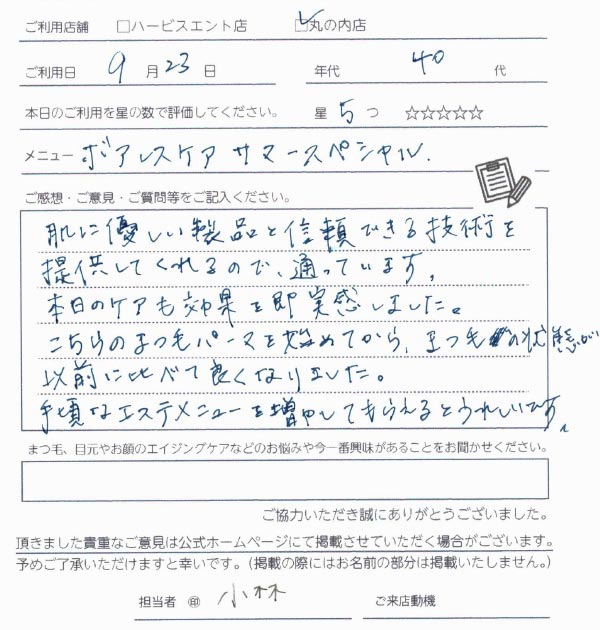 ご利用店舗 □ハービスエント店 ☑丸の内店
ご利用日 9月23日 年代 40代
本日のご利用を星の数で評価してください。 星5つ ☆☆☆☆☆
メニュー ポアレスケア サマースペシャル.
ご感想・ご意見・ご質問等をご記入ください。
肌に優しい製品と信頼できる技術を
提供してくれるので、通っています。
本日のケアも効果を即実感しました。
こちらのまつ毛パーマを始めてから、まつ毛の状態が
以前に比べて良くなりました。
手頃なエステメニューを増やしてもらえるとうれしいです。
まつ毛、目元やお顔のエイジングケアなどのお悩みや今一番興味があることをお聞かせください。
ご協力いただき誠にありがとうございました。
頂きました貴重なご意見は公式ホームページにて掲載させていただく場合がございます。
予めご了承いただけますと幸いです。(掲載の際にはお名前の部分は掲載いたしません。)
担当者 ㊞ 小林 ご来店動機